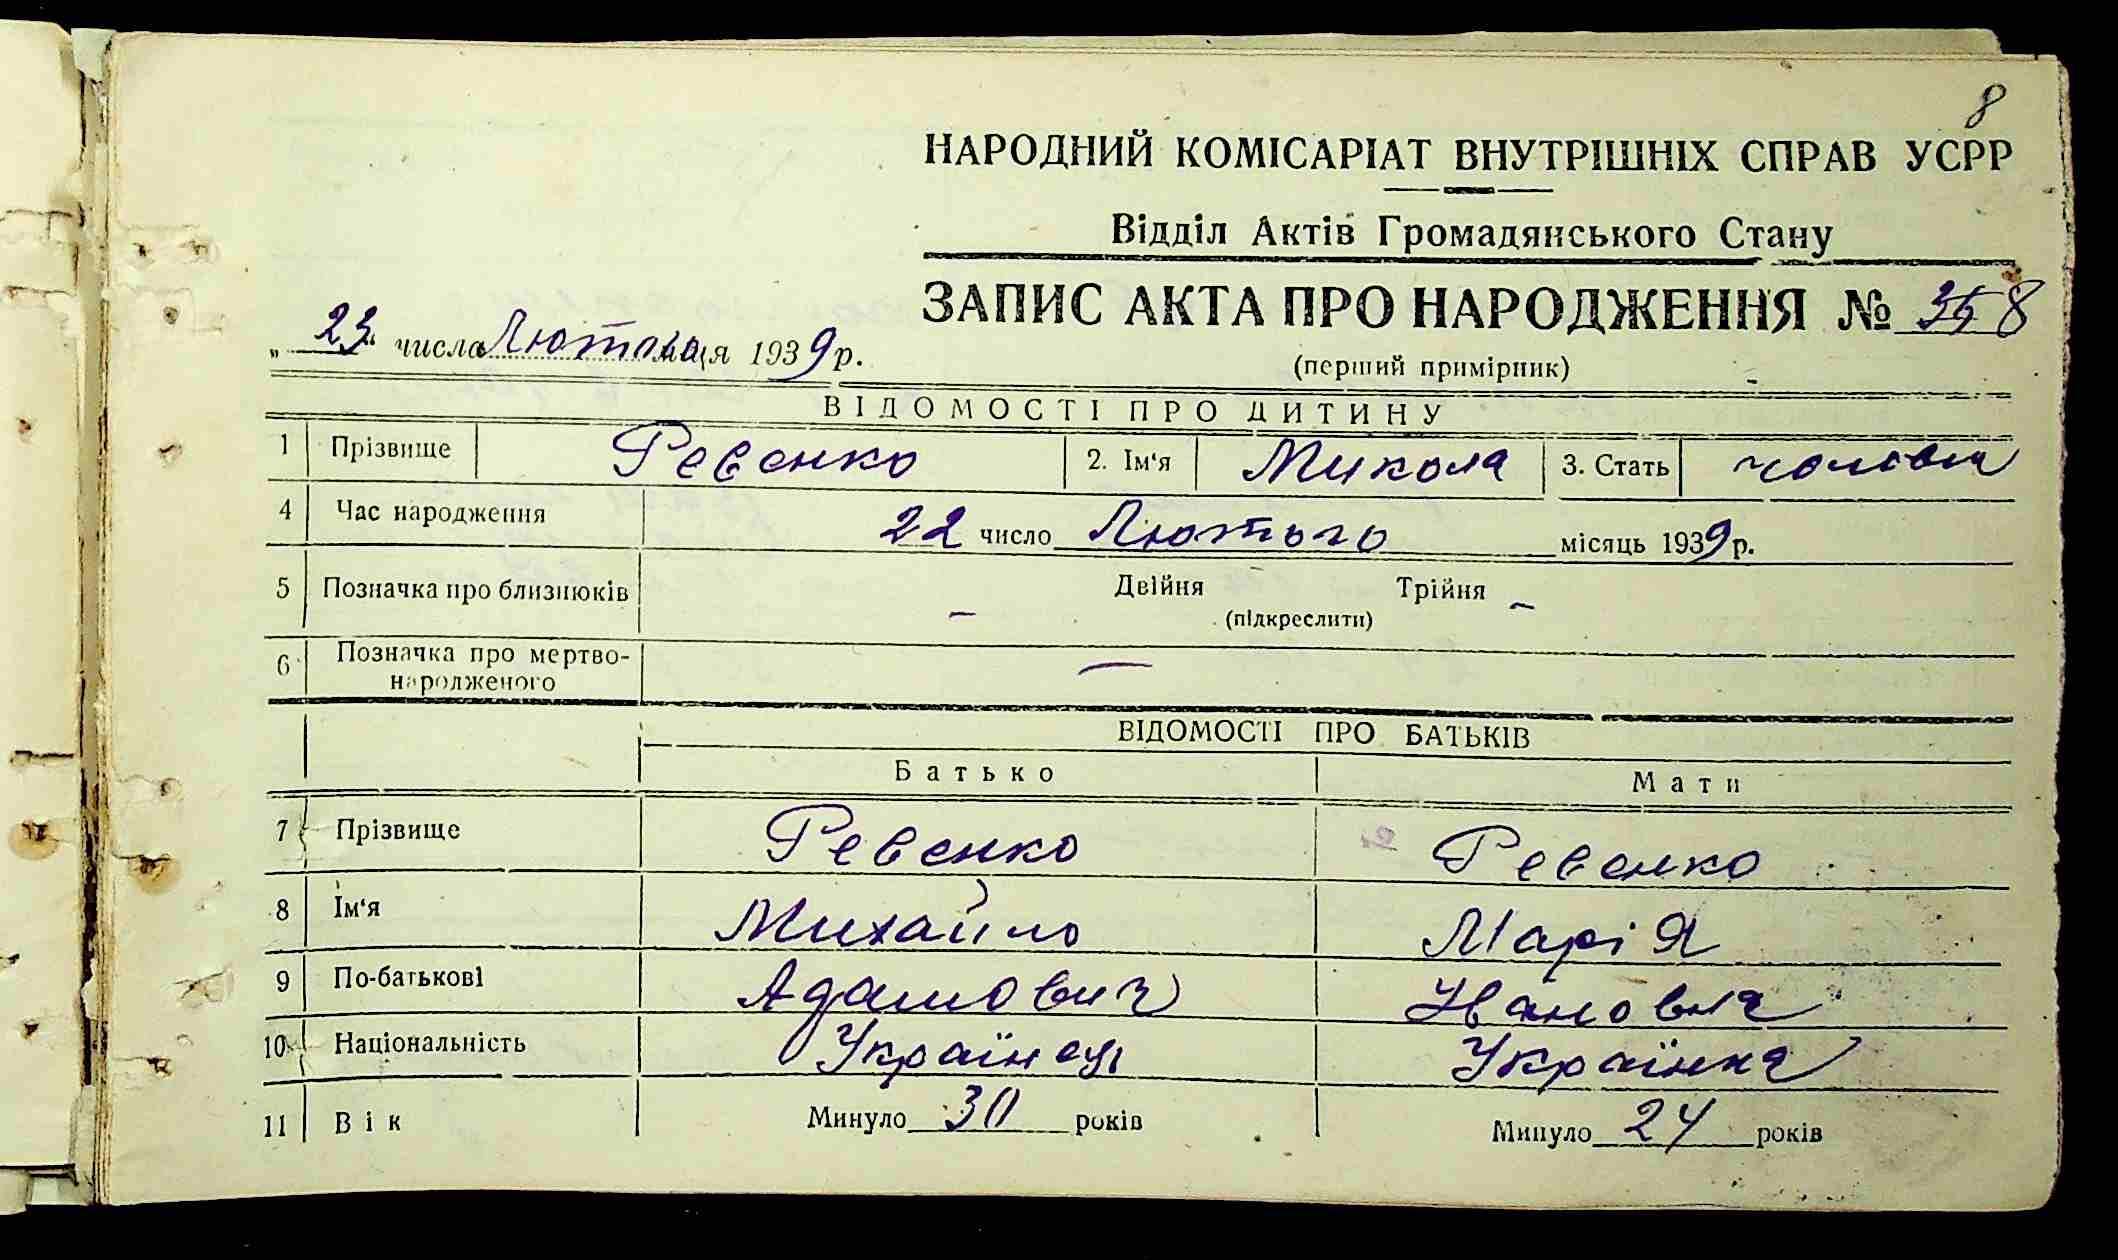 8
НАРОДНИЙ КОМІСАРІАТ ВНУТРІШНІХ СПРАВ УСРР
Відділ Актів Громадянського Стану
ЗАПИС АКТА ПРО НАРОДЖЕННЯ № 358
„ 23 " числа Лютого м-ця 1939 р.
(перший примірник)
ВІДОМОСТІ ПРО ДИТИНУ
1 Прізвище Ревенко 2. Ім'я Микола 3. Стать
4 Час народження 22 число Лютого місяць 1939 р.
5 Позначка про близнюків – Двійня Трійня –
(підкреслити)
6 Позначка про мертво-
народженого —
ВІДОМОСТІ ПРО БАТЬКІВ
Батько Мати
7 Прізвище Ревенко Ревенко
8 Ім'я Михайло Марія
9 По-батькові Адамович Ивановна
10 Національність Українець Українка
11 Вік Минуло 30 років Минуло 24 років